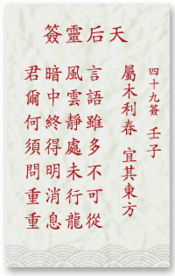 天后靈簽
四十九簽 壬子
屬木利春 宜其東方
言語雖多不可從
風雲靜處未行龍
暗中終得明消息
君爾何須問重重